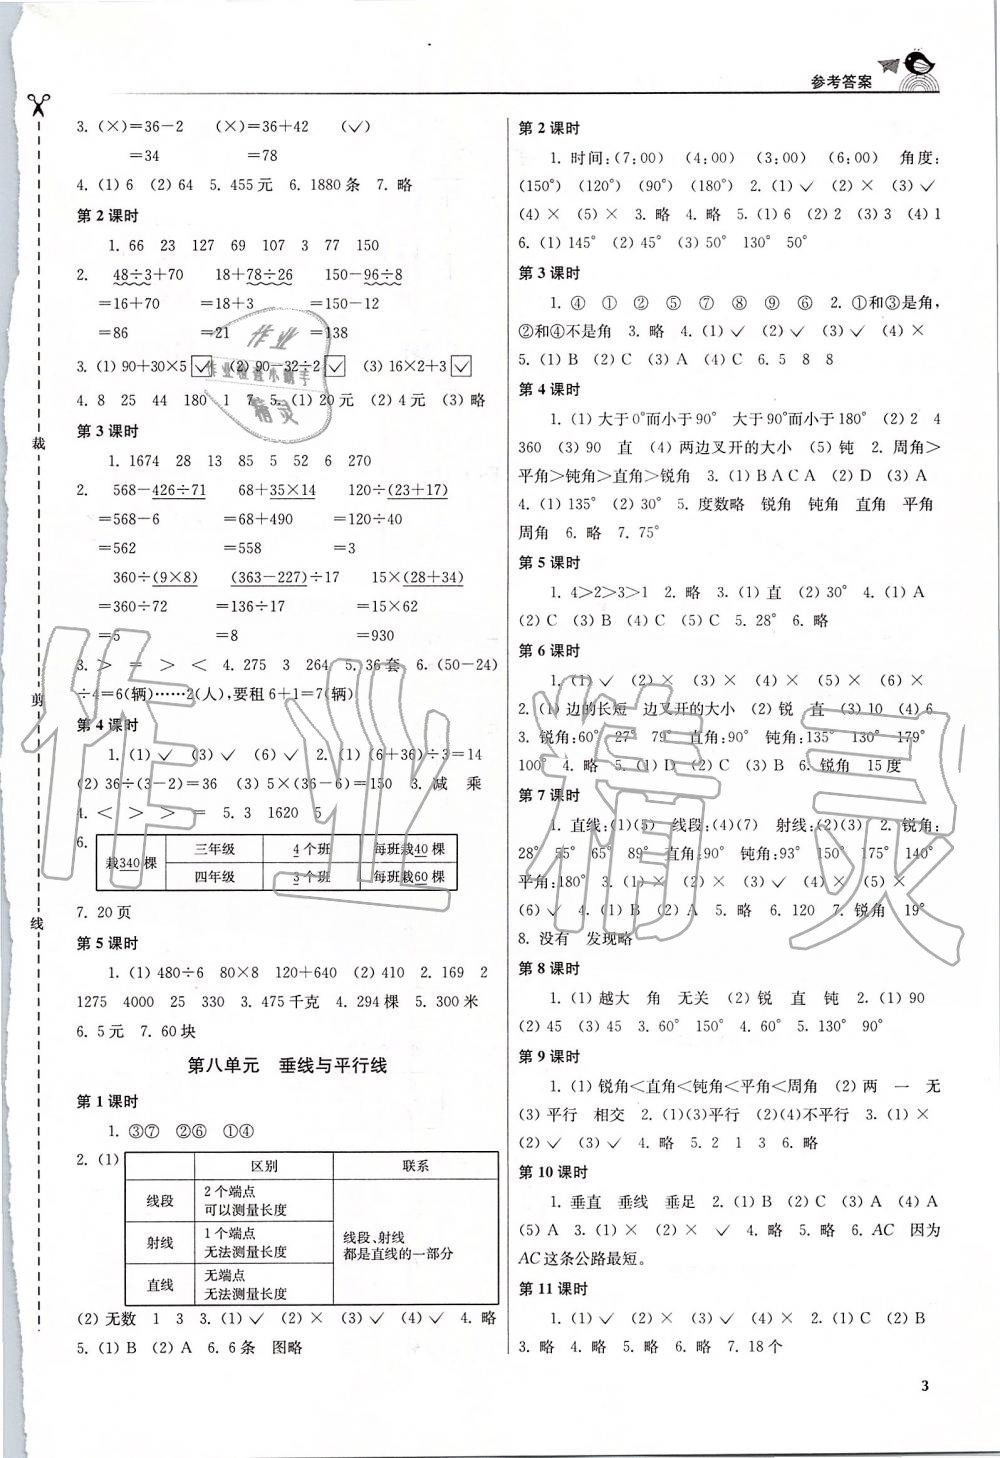 参考答案
3. (×)=36−2 (×)=36+42 (✓)
=34 =78
4. (1) 6 (2) 64 5. 455元 6. 1880条 7. 略
第2课时
1. 66 23 127 69 107 3 77 150
2. 48÷3+70 18+78÷26 150−96÷8
=16+70 =18+3 =150−12
=86 =21 =138
3. (1) 90+30×5 ✓ (2) 90−32÷2 ✓ (3) 16×2+3 ✓
4. 8 25 44 180 1 7 5. (1) 20元 (2) 4元 (3) 略
第3课时
1. 1674 28 13 85 5 52 6 270
2. 568−426÷71 68+35×14 120÷(23+17)
=568−6 =68+490 =120÷40
=562 =558 =3
360÷(9×8) (363−227)÷17 15×(28+34)
=360÷72 =136÷17 =15×62
=5 =8 =930
3. > = > < 4. 275 3 264 5. 36套 6. (50−24)
÷4=6(辆)……2(人),要租6+1=7(辆)
第4课时
1. (1) ✓ (3) ✓ (6) ✓ 2. (1) (6+36)÷3=14
(2) 36÷(3−2)=36 (3) 5×(36−6)=150 3. 减 乘
4. < > > = 5. 3 1620 5
6. 栽340棵 三年级 4个班 每班栽40棵
四年级 3个班 每班栽60棵
7. 20页
第5课时
1. (1) 480÷6 80×8 120+640 (2) 410 2. 169 2
1275 4000 25 330 3. 475千克 4. 294棵 5. 300米
6. 5元 7. 60块
第八单元 垂线与平行线
第1课时
1. ③⑦ ②⑥ ①④
2. (1) 区别 联系
线段 2个端点 可以测量长度
射线 1个端点 无法测量长度 线段、射线都是直线的一部分
直线 无端点 无法测量长度
(2) 无数 1 3 3. (1) ✓ (2) × (3) ✓ (4) ✓ 4. 略
5. (1) B (2) A 6. 6条 图略
第2课时
1. 时间:(7:00) (4:00) (3:00) (6:00) 角度:
(150°) (120°) (90°) (180°) 2. (1) ✓ (2) × (3) ✓
(4) × (5) × 3. 略 4. 略 5. (1) 6 (2) 2 (3) 3 (4) 1
6. (1) 145° (2) 45° (3) 50° 130° 50°
第3课时
1. ④ ① ② ⑤ ⑦ ⑧ ⑨ ⑥ 2. ①和③是角,
②和④不是角 3. 略 4. (1) ✓ (2) ✓ (3) ✓ (4) ×
5. (1) B (2) C (3) A (4) C 6. 5 8 8
第4课时
1. (1) 大于0°而小于90° 大于90°而小于180° (2) 2 4
360 (3) 90 直 (4) 两边叉开的大小 (5) 钝 2. 周角>
平角>钝角>直角>锐角 3. (1) B A C A (2) D (3) A
4. (1) 135° (2) 30° 5. 度数略 锐角 钝角 直角 平角
周角 6. 略 7. 75°
第5课时
1. 4>2>3>1 2. 略 3. (1) 直 (2) 30° 4. (1) A
(2) C (3) B (4) C (5) C 5. 28° 6. 略
第6课时
1. (1) ✓ (2) × (3) × (4) × (5) × (6) ×
2. (1) 边的长短 边叉开的大小 (2) 锐 直 (3) 10 (4) 6
3. 锐角:60° 27° 79° 直角:90° 钝角:135° 130° 179°
100° 4. 略 5. (1) D (2) C (3) B 6. 锐角 15度
第7课时
1. 直线:(1)(5) 线段:(4)(7) 射线:(2)(3) 2. 锐角:
28° 55° 65° 89° 直角:90° 钝角:93° 150° 175° 140°
平角:180° 3. (1) × (2) × (3) ✓ (4) × (5) ×
(6) ✓ 4. (1) B (2) A 5. 略 6. 120 7. 锐角 19°
8. 没有 发现略
第8课时
1. (1) 越大 角 无关 (2) 锐 直 钝 2. (1) 90
(2) 45 (3) 45 3. 60° 150° 4. 60° 5. 130° 90°
第9课时
1. (1) 锐角<直角<钝角<平角<周角 (2) 两 一 无
(3) 平行 相交 2. (1)(3)平行 (2)(4)不平行 3. (1) ×
(2) ✓ (3) ✓ 4. 略 5. 2 1 3 6. 略
第10课时
1. 垂直 垂线 垂足 2. (1) B (2) C (3) A (4) A
(5) A 3. (1) × (2) × ✓ 4. 略 5. 略 6. AC 因为
AC这条公路最短。
第11课时
1. (1) ✓ (2) × (3) ✓ (4) × 2. (1) C (2) B
3. 略 4. 略 5. 略 6. 略 7. 18个
3
裁
剪
线
作业
作业检查小帮手
精灵
作业精灵